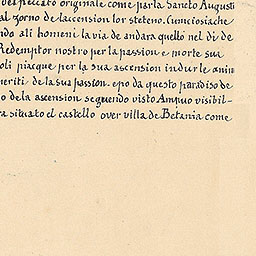 del peccato originale come parla Sancto Augusti
al zorno de laccension lor steteno. Cumciosiache
ndo ali homeni la via de andara quello nel di de
Redemptor nostro per la passion e morte sua
oli piacque per la sua ascension indurle anim
meriti de la sua passion. epo da questo paradiso de
o de la ascension seguendo visto Ampuo visibil-
ra situato el castello over villa de Betania come